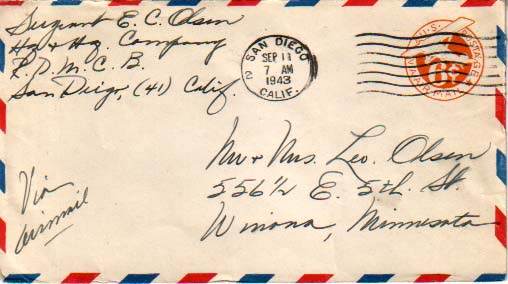 Sergeant E. C. Olsen
Hq & Hq. Company
R. D. M. C. B.
San Diego, (41) Calif.
SAN DIEGO
2
SEP 11
7 AM
1943
CALIF.
U.S. POSTAGE
6¢
VIA AIR MAIL
Mr & Mrs. Leo. Olsen
556½ E. 5th. St.
Winona, Minnesota
Via
airmail